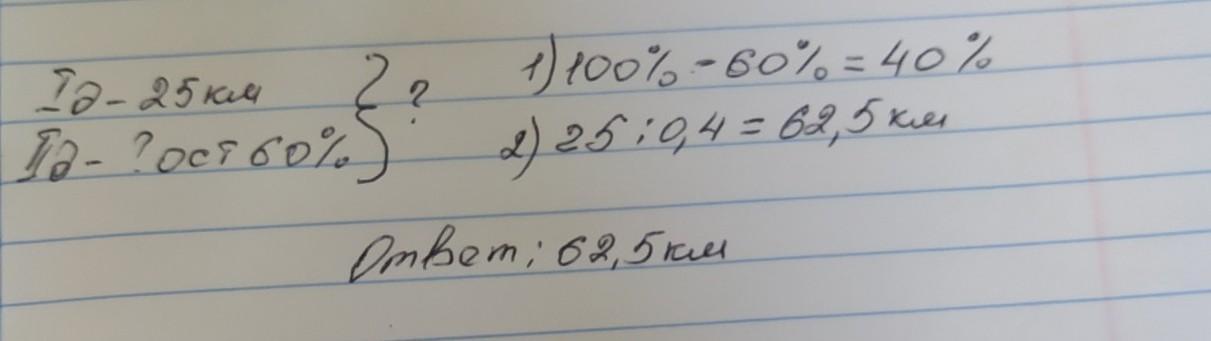 Iд - 25 км } ?
IIд - ? ост 60%
1) 100% - 60% = 40%
2) 25 : 0,4 = 62,5 км
Ответ: 62,5 км